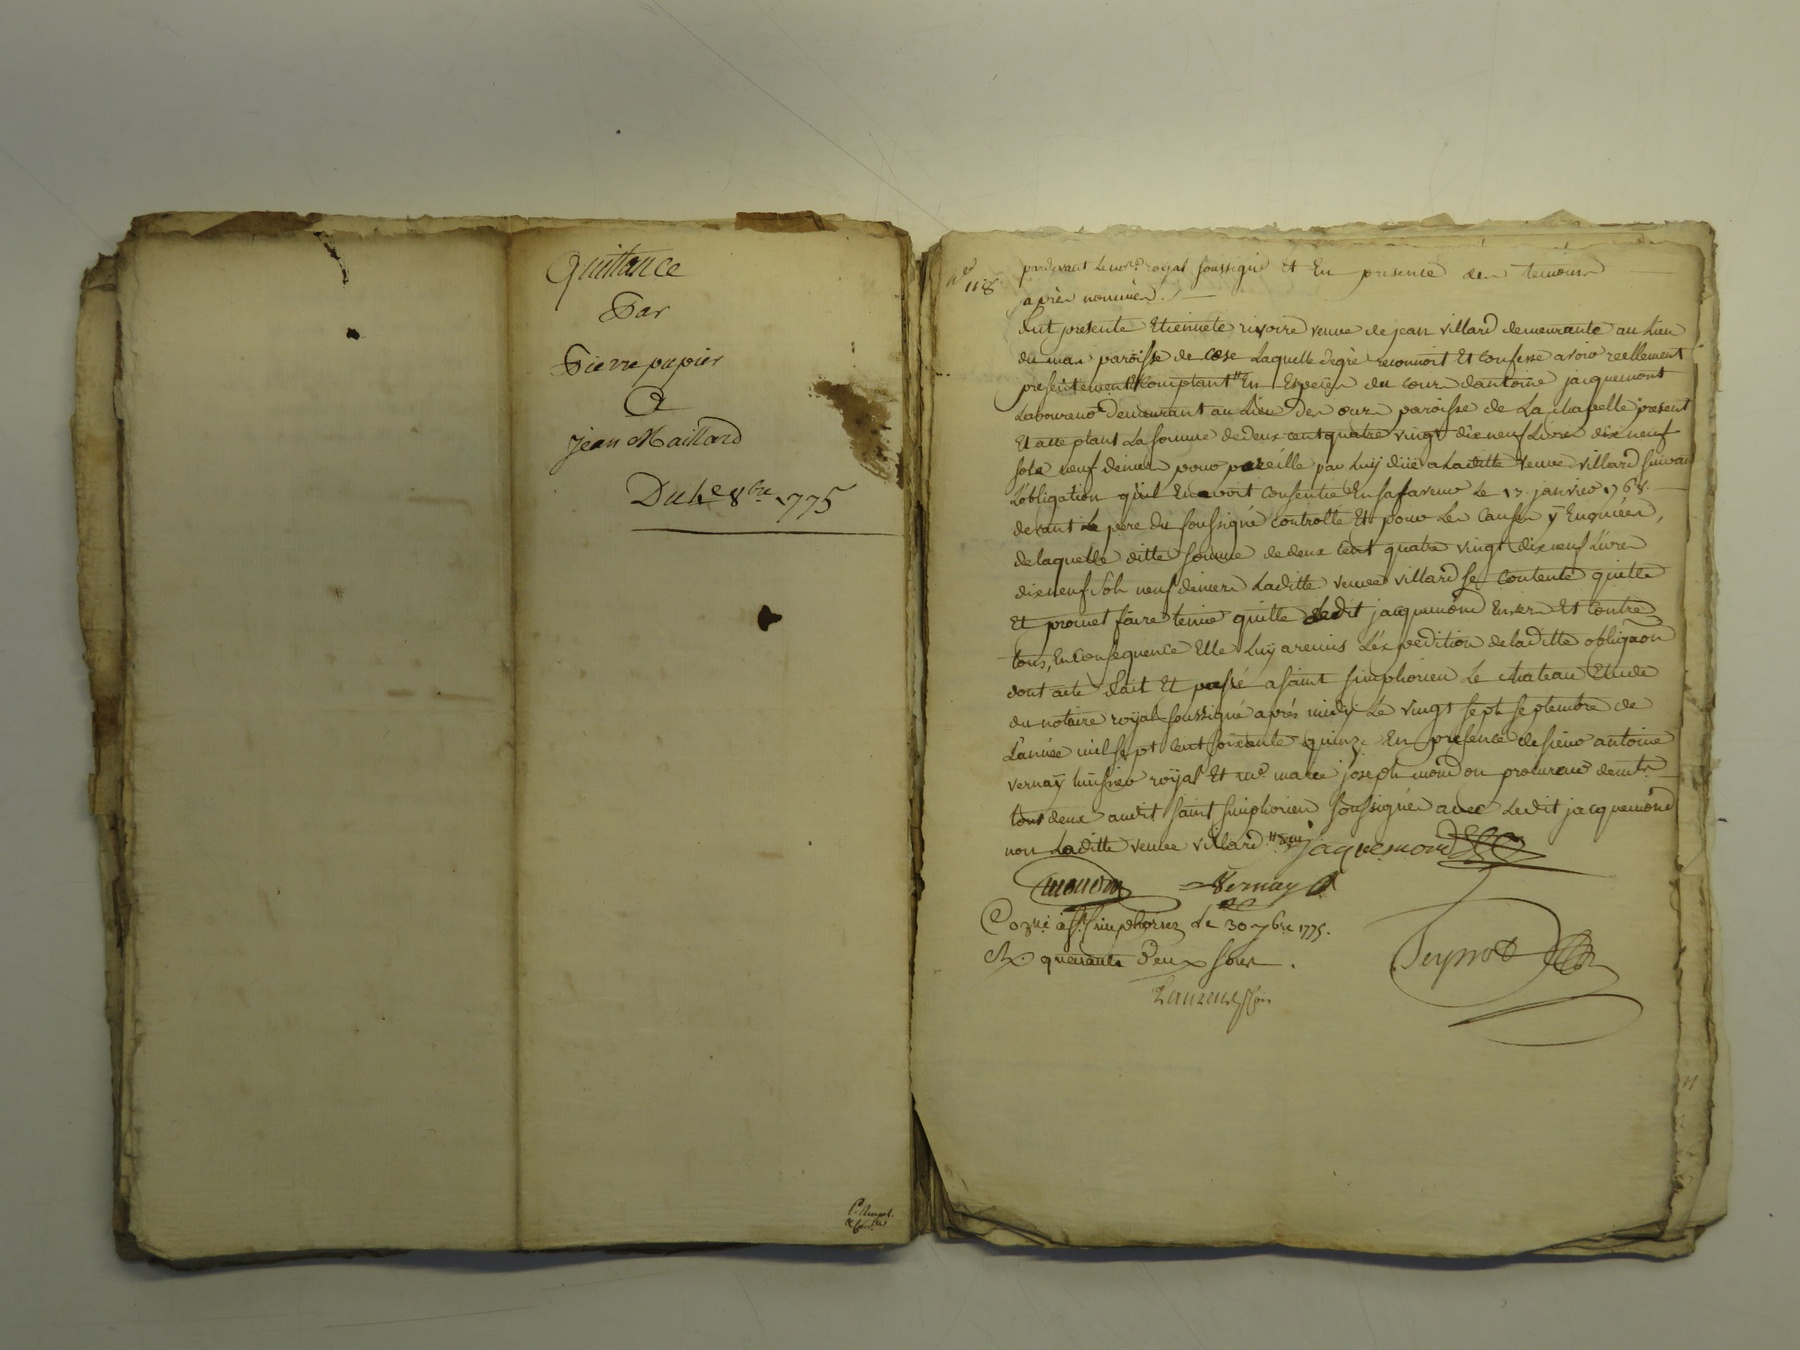 Quittance
Par
Pierre papier
A
Jean Maillard
Du 8bre 1775
n° 118
pardevant le no.re royal soussigné Et En presence des temoins
après nommés.
fut presente Etiennete rivoire veuve de jean villard demeurante au Lieu
du mas paroisse de Coese Laquelle degré reconnoit Et Confesse avoir reellement
presentement Comptant En Especes du Cours dantoine jacquemont
Laboureur demeurant au Lieu des ours paroisse de La chapelle present
Et acceptant La somme de deux cent quatre vingt dix neuf Livres dix neuf
sols neuf deniers pour pareille par Luy düe a Laditte veuve villard suivant
L'obligation qu'il En avoit Consentie En sa faveur Le 17 janvier 1768
devant le pere du soussigné Controllé Et pour Les Causes y Enoncées,
de laquelle ditte somme de deux Cent quatre vingt dix neuf Livres
dix neuf sols neuf deniers Laditte veuve villard se Contente quitte
Et promet faire tenir quitte Ledit jacquemond Envers Et Contre
tous, En Consequence Elle Luy a remis L'expedition de laditte obligaon
dont acte fait Et passé a saint simphorien Le chateau Etude
du notaire royal soussigné après midy Le vingt sept septembre de
L'année mil sept cent soixante quinze En presence de sieur antoine
vernaÿ huissier roÿal Et me. marie joseph mondon procureur
tous deux audit saint simphorien soussignés avec Ledit jacquemond
non Laditte veuve villard
jaquemond
Vernay
Coле à St. Simphorien Le 30 7bre 1775.
Rx quarante deux sous.
Peyrot
Laurenson